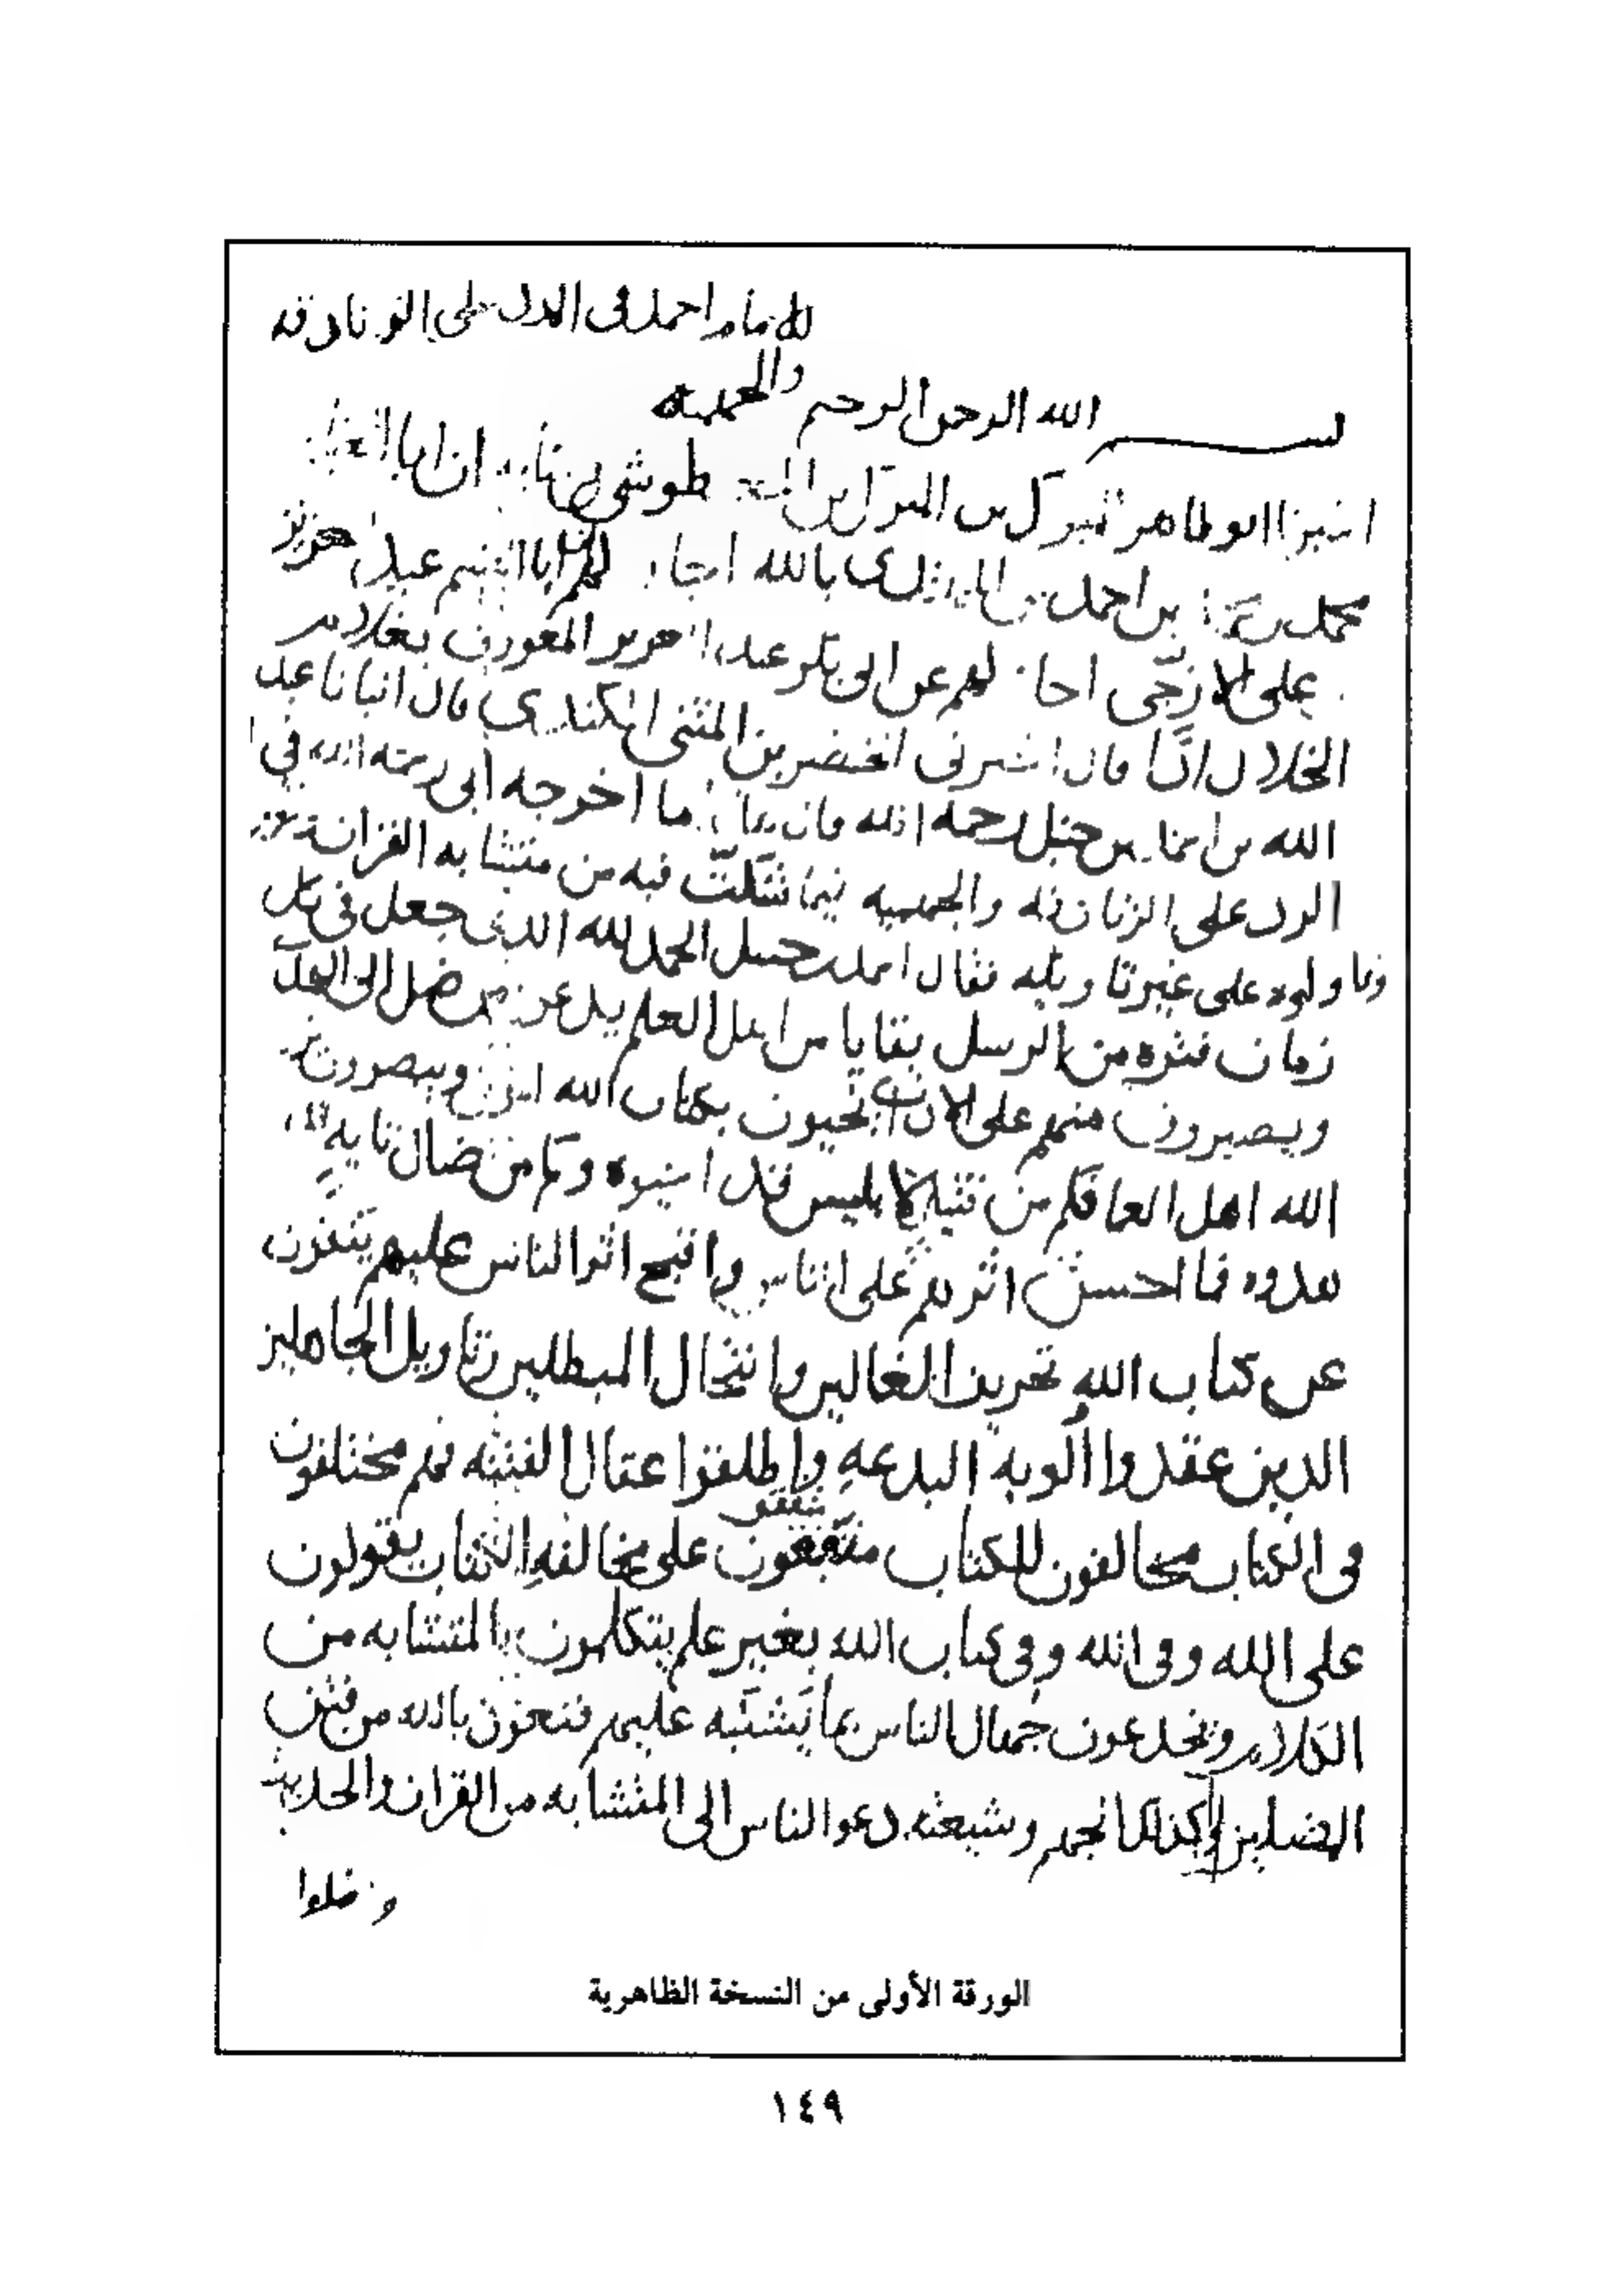 للامام احمد في الرد على الزنادقه
والجهميه
بسم الله الرحمن الرحيم
اخبرنا ابو طاهر المبارك بن المبارك بن طوشي في كتابه ان ابا
محمد بن احمد بن بالله اجاز لهم ابا القسم عبد العزيز
على الازجي اجاز لهم عن ابى بكر عبد العزيز المعروف بغلام
الخلال انا قال اخبرني الخضر بن المثنى الكندي قال انبانا عبد
الله بن احمد بن حنبل رحمه الله قال هذا ما اخرجه ابى رحمه الله في
الرد على الزنادقه والجهميه فيما شكت فيه من متشابه القران
وتاولوه على غير تاويله فقال احمد بن حنبل الحمد لله الذي جعل في كل
زمان فتره من الرسل بقايا من اهل العلم يدعون من ضل الى الهدى
ويصبرون منهم على الاذى يحيون بكتاب الله الموتى ويبصرون بنور
الله اهل العما فكم من قتيل لابليس قد احيوه وكم من ضال تايه قد
هدوه فما احسن اثرهم على الناس واقبح اثر الناس عليهم ينفون
عن كتاب الله تحريف الغالين وانتحال المبطلين وتاويل الجاهلين
الذين عقدوا الويه البدعه واطلقوا عقال الفتنه فهم مختلفون
في الكتاب مخالفون للكتاب متفقون على مخالفه الكتاب يقولون
على الله وفى الله وفى كتاب الله بغير علم يتكلمون بالمتشابه من
الكلام ويخدعون جهال الناس بما يشبه عليهم فنعوذ بالله من فتن
المضلين وكذلك الجهم وشيعته دعوا الناس الى المتشابه من القران والحديث
وضلوا
الورقة الأولى من النسخة الظاهرية
١٤٩